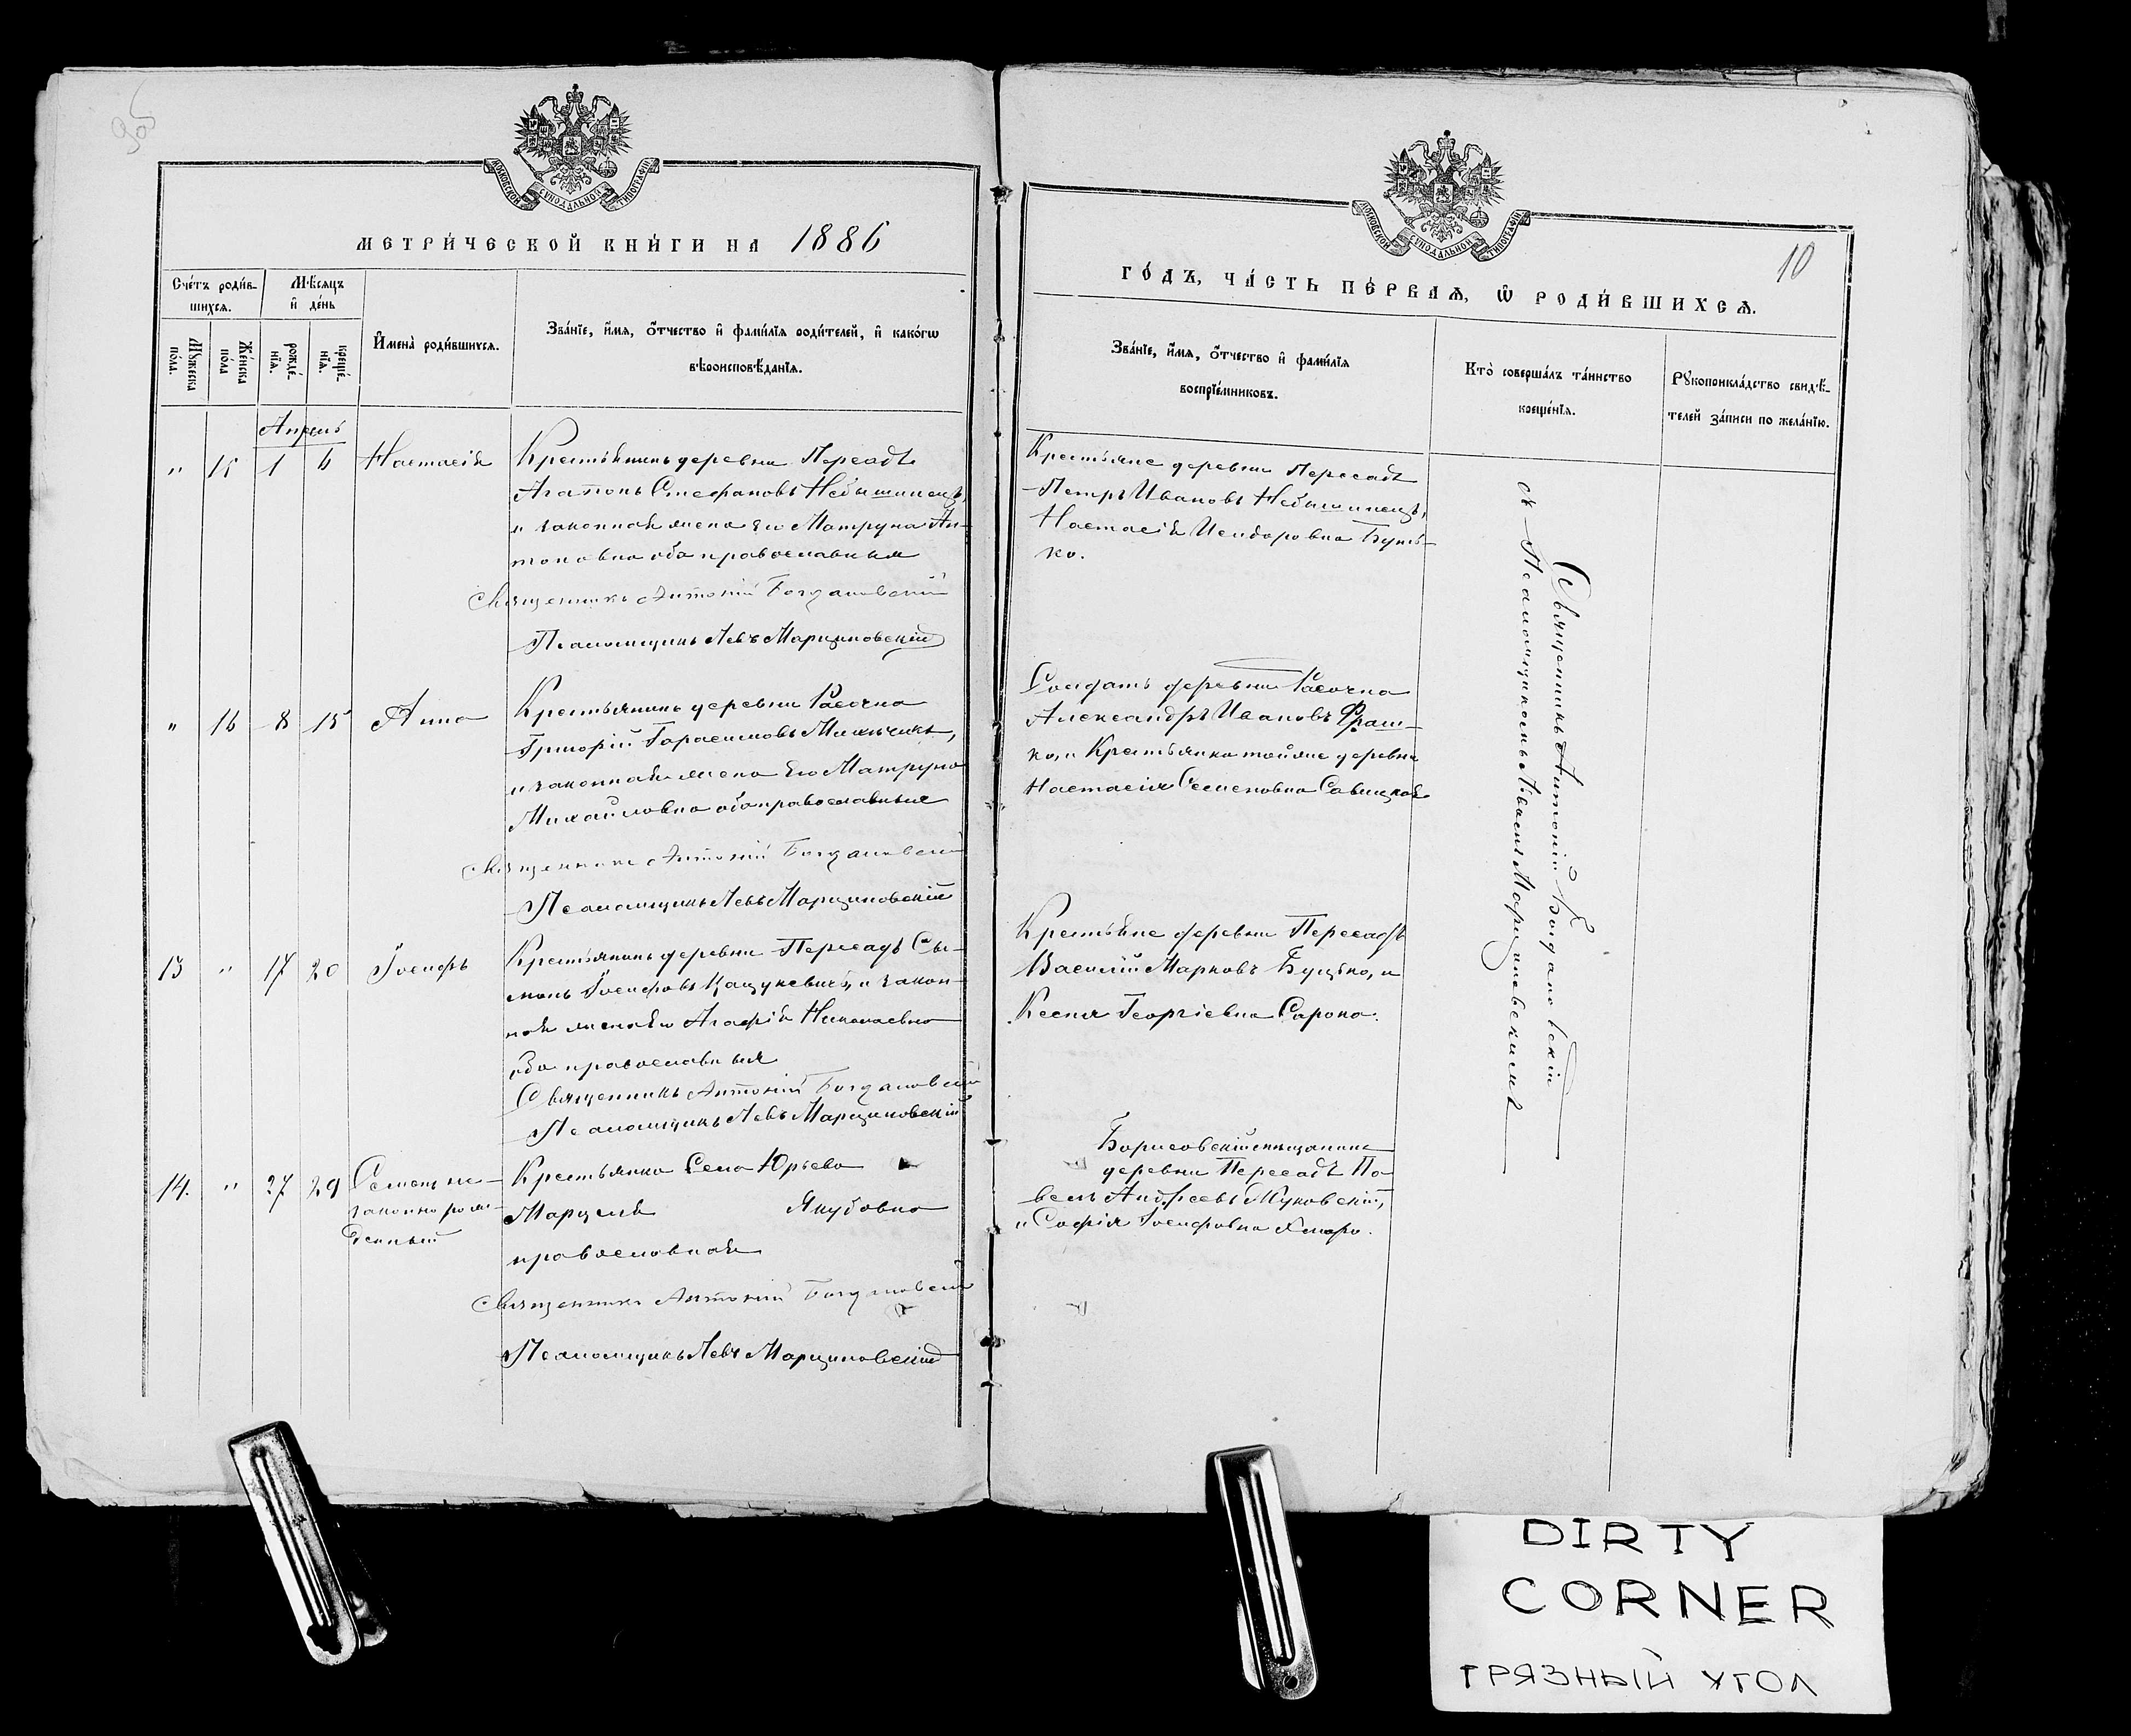 МОСКОВСКОЙ СѴНОДАЛЬНОЙ ТИПОГРАФІИ
МЕТРИ́ЧЕСКОЙ КНИ́ГИ НА 1886
Сче́тъ роди́в-
шихсѧ.
Мѣ́сѧцъ
и҆ де́нь
Мꙋ́жеска
по́ла.
Же́нска
по́ла
рожде́-
нїѧ.
креще́-
нїѧ.
И҆мена̀ роди́вшихсѧ.
Зва́нїе, и҆́мѧ, ѻ҆́тчество и҆ фами́лїѧ роди́телей, и҆ како́гѡ
вѣроисповѣ́данїѧ.
Апрель
" 15 1 6 Настасія
Крестьянинъ деревни Пересадъ
Агапонъ Стефановъ Небышинецъ,
и законная жена его Матруна Ан-
тоновна оба православныя
Священникъ Антоній Богдановскій
Псаломщикъ Левъ Марциновскій
" 16 8 15 Анна
Крестьянинъ деревни Расочна
Григорій Герасимовъ
и законная жена его Матруна
Михайловна оба православные
Священникъ Антоній Богдановскій
Псаломщикъ Левъ Марциновскій
13 " 17 20 Іосифъ
Крестьянинъ деревни Пересадъ Сы-
монъ Іосифовъ Кацукевичъ, и закон-
ная жена его Агафія Николаевна
оба православныя
Священникъ Антоній Богдановскій
Псаломщикъ Левъ Марциновскій
14. " 27 29 Семенъ не-
законно рож-
денный
Крестьянка Села Юрьева
Марцеля Якубовна
православная
Священникъ Антоній Богдановскій
Псаломщикъ Левъ Марциновскій
МОСКОВСКОЙ СѴНОДАЛЬНОЙ ТИПОГРАФІИ
10
ГО́ДЪ, ЧА́СТЬ ПЕ́РВАѦ, Ѡ҆ РОДИ́ВШИХСѦ.
Зва́нїе, и҆́мѧ, ѻ҆́тчество и҆ фами́лїѧ
воспрїе́мниковъ.
Кто̀ соверша́лъ та́инство
креще́нїѧ.
Рꙋкоприкла́дство свидѣ́-
телей за́писи по жела́нїю.
Крестьяне деревни Пересадъ
Петръ Ивановъ Небышинецъ,
Настасія Исидоровна Буть-
ко.
Солдатъ деревни Расочна
Александръ Ивановъ
ко, и Крестьянка тойже деревни
Настасія Семеновна Савицкая
Крестьяне деревни Пересадъ
Василій Марковъ Буцько, и
Ксенія Георгіевна Сарока.
Борисовскій мещанинъ
деревни Пересадъ Па-
велъ Андреевъ Жуковскій,
и Софія Іосифовна
Священникъ Антоній Богдановскій
съ Псаломщикомъ Львомъ Марциновскимъ
DIRTY
CORNER
ГРЯЗНЫЙ УГОЛ